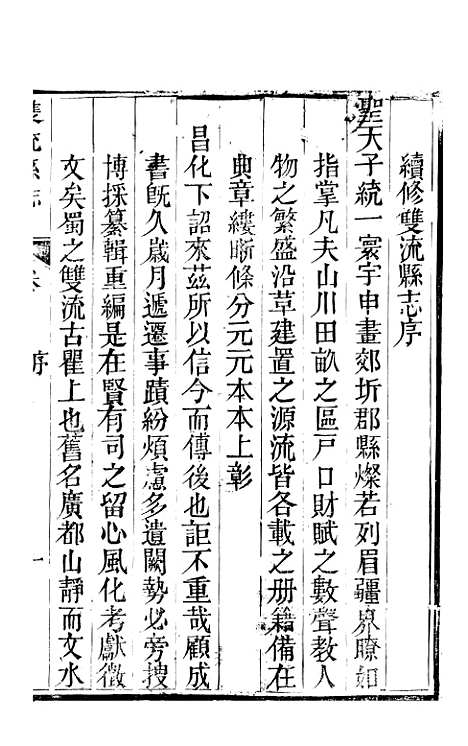 續修雙流縣志序
聖天子統一寰宇申畫郊圻郡縣燦若列眉疆界瞭如
指掌凡夫山川田畝之區戶口財賦之數聲教人
物之繁盛沿革建置之源流皆各載之册籍備在
典章縷晣條分元元本本上彰
昌化下詔來茲所以信今而傳後也詎不重哉顧成
書旣久歲月遞遷事蹟紛煩慮多遺闕勢必旁搜
博採纂輯重編是在賢有司之留心風化考獻徵
文矣蜀之雙流古瞿上也舊名廣都山靜而文水
雙流縣志
序
一